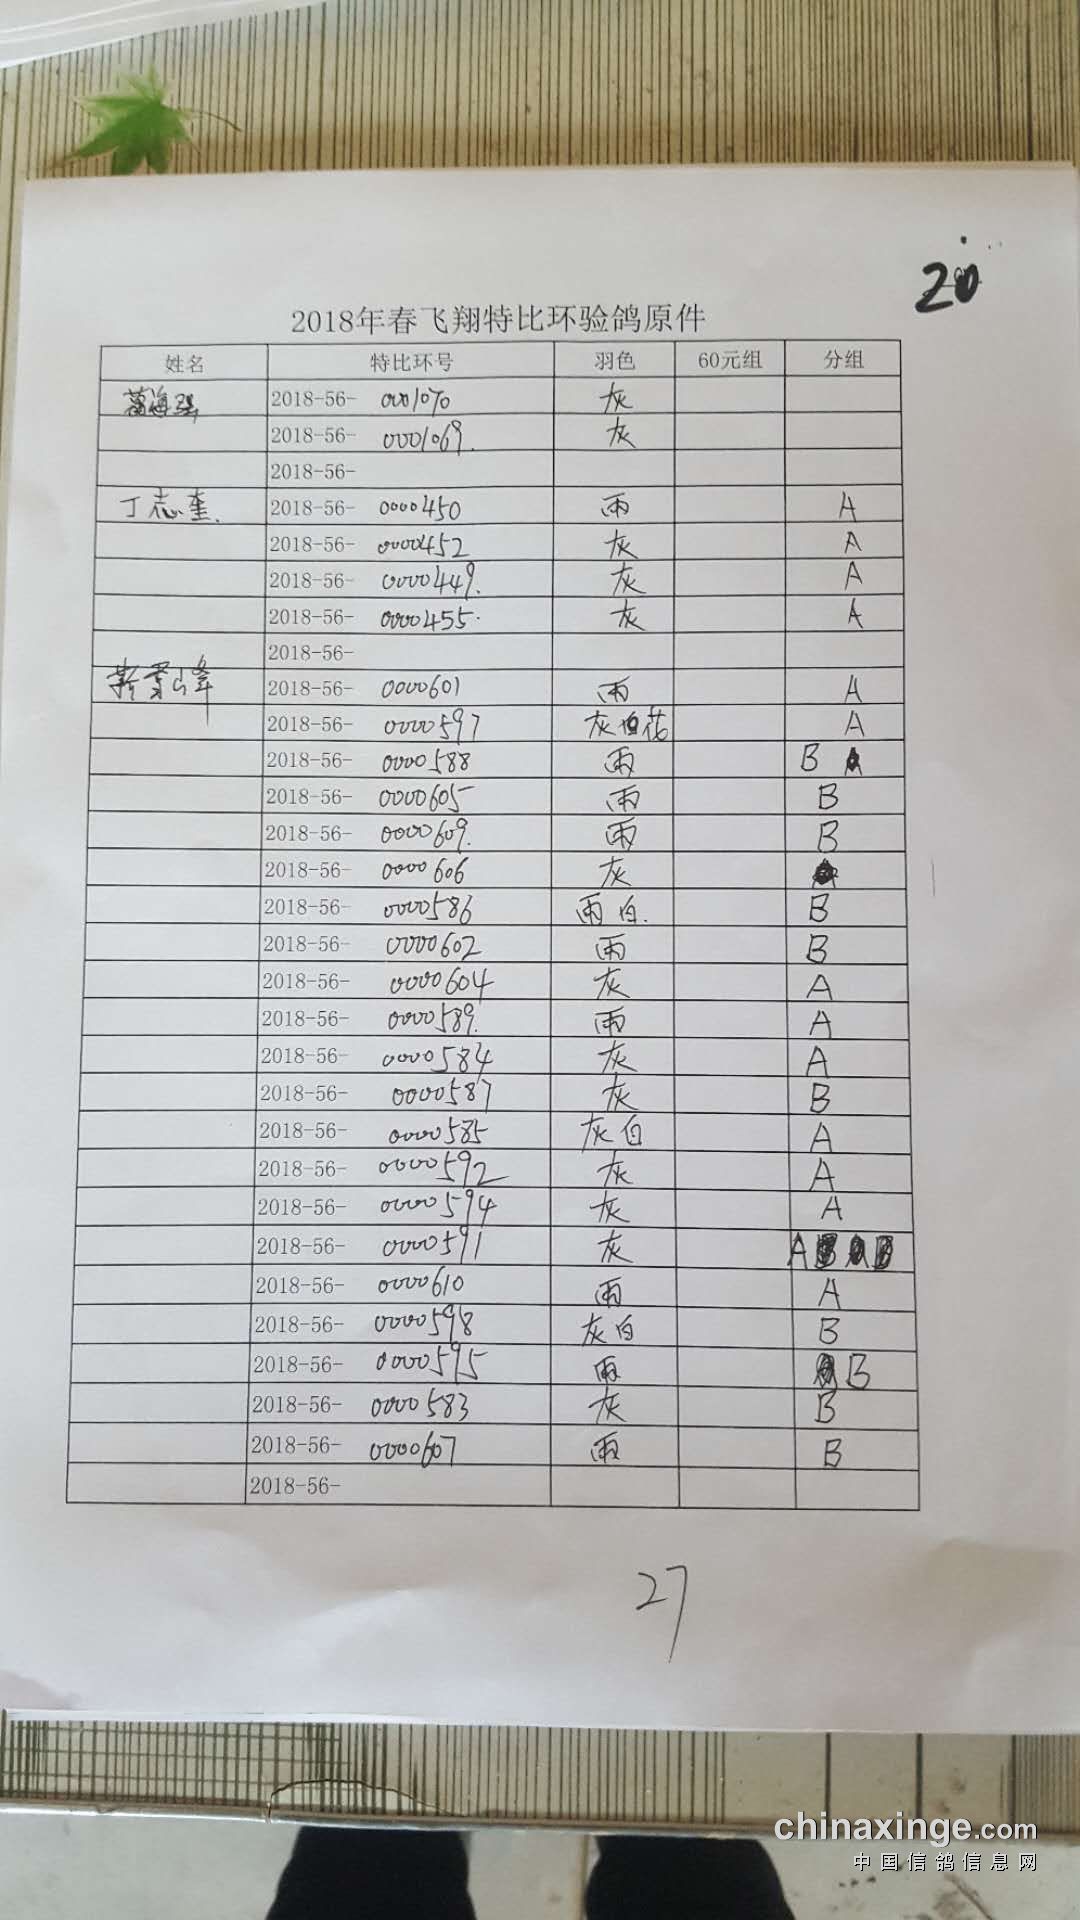 20
2018年春飞翔特比环验鸽原件
姓名 特比环号 羽色 60元组 分组
葛海强 2018-56- 0001070 灰
2018-56- 0001069. 灰
2018-56-
丁志奎. 2018-56- 0000450 雨 A
2018-56- 0000452 灰 A
2018-56- 0000449. 灰 A
2018-56- 0000455. 灰 A
2018-56-
2018-56- 0000601 雨 A
2018-56- 0000597 灰白花 A
2018-56- 0000588 雨 B
2018-56- 0000605 雨 B
2018-56- 0000609. 雨 B
2018-56- 0000606 灰
2018-56- 0000586 雨白. B
2018-56- 0000602 雨 B
2018-56- 0000604 灰 A
2018-56- 0000589. 雨 A
2018-56- 0000584 灰 A
2018-56- 0000587 灰 B
2018-56- 0000585 灰白 A
2018-56- 0000592 灰 A
2018-56- 0000594 灰 A
2018-56- 0000591 灰 A
2018-56- 0000610 雨 A
2018-56- 0000598 灰白 B
2018-56- 0000595 雨 B
2018-56- 0000583 灰 B
2018-56- 0000607 雨 B
2018-56-
27
chinaxinge.com
中国信鸽信息网